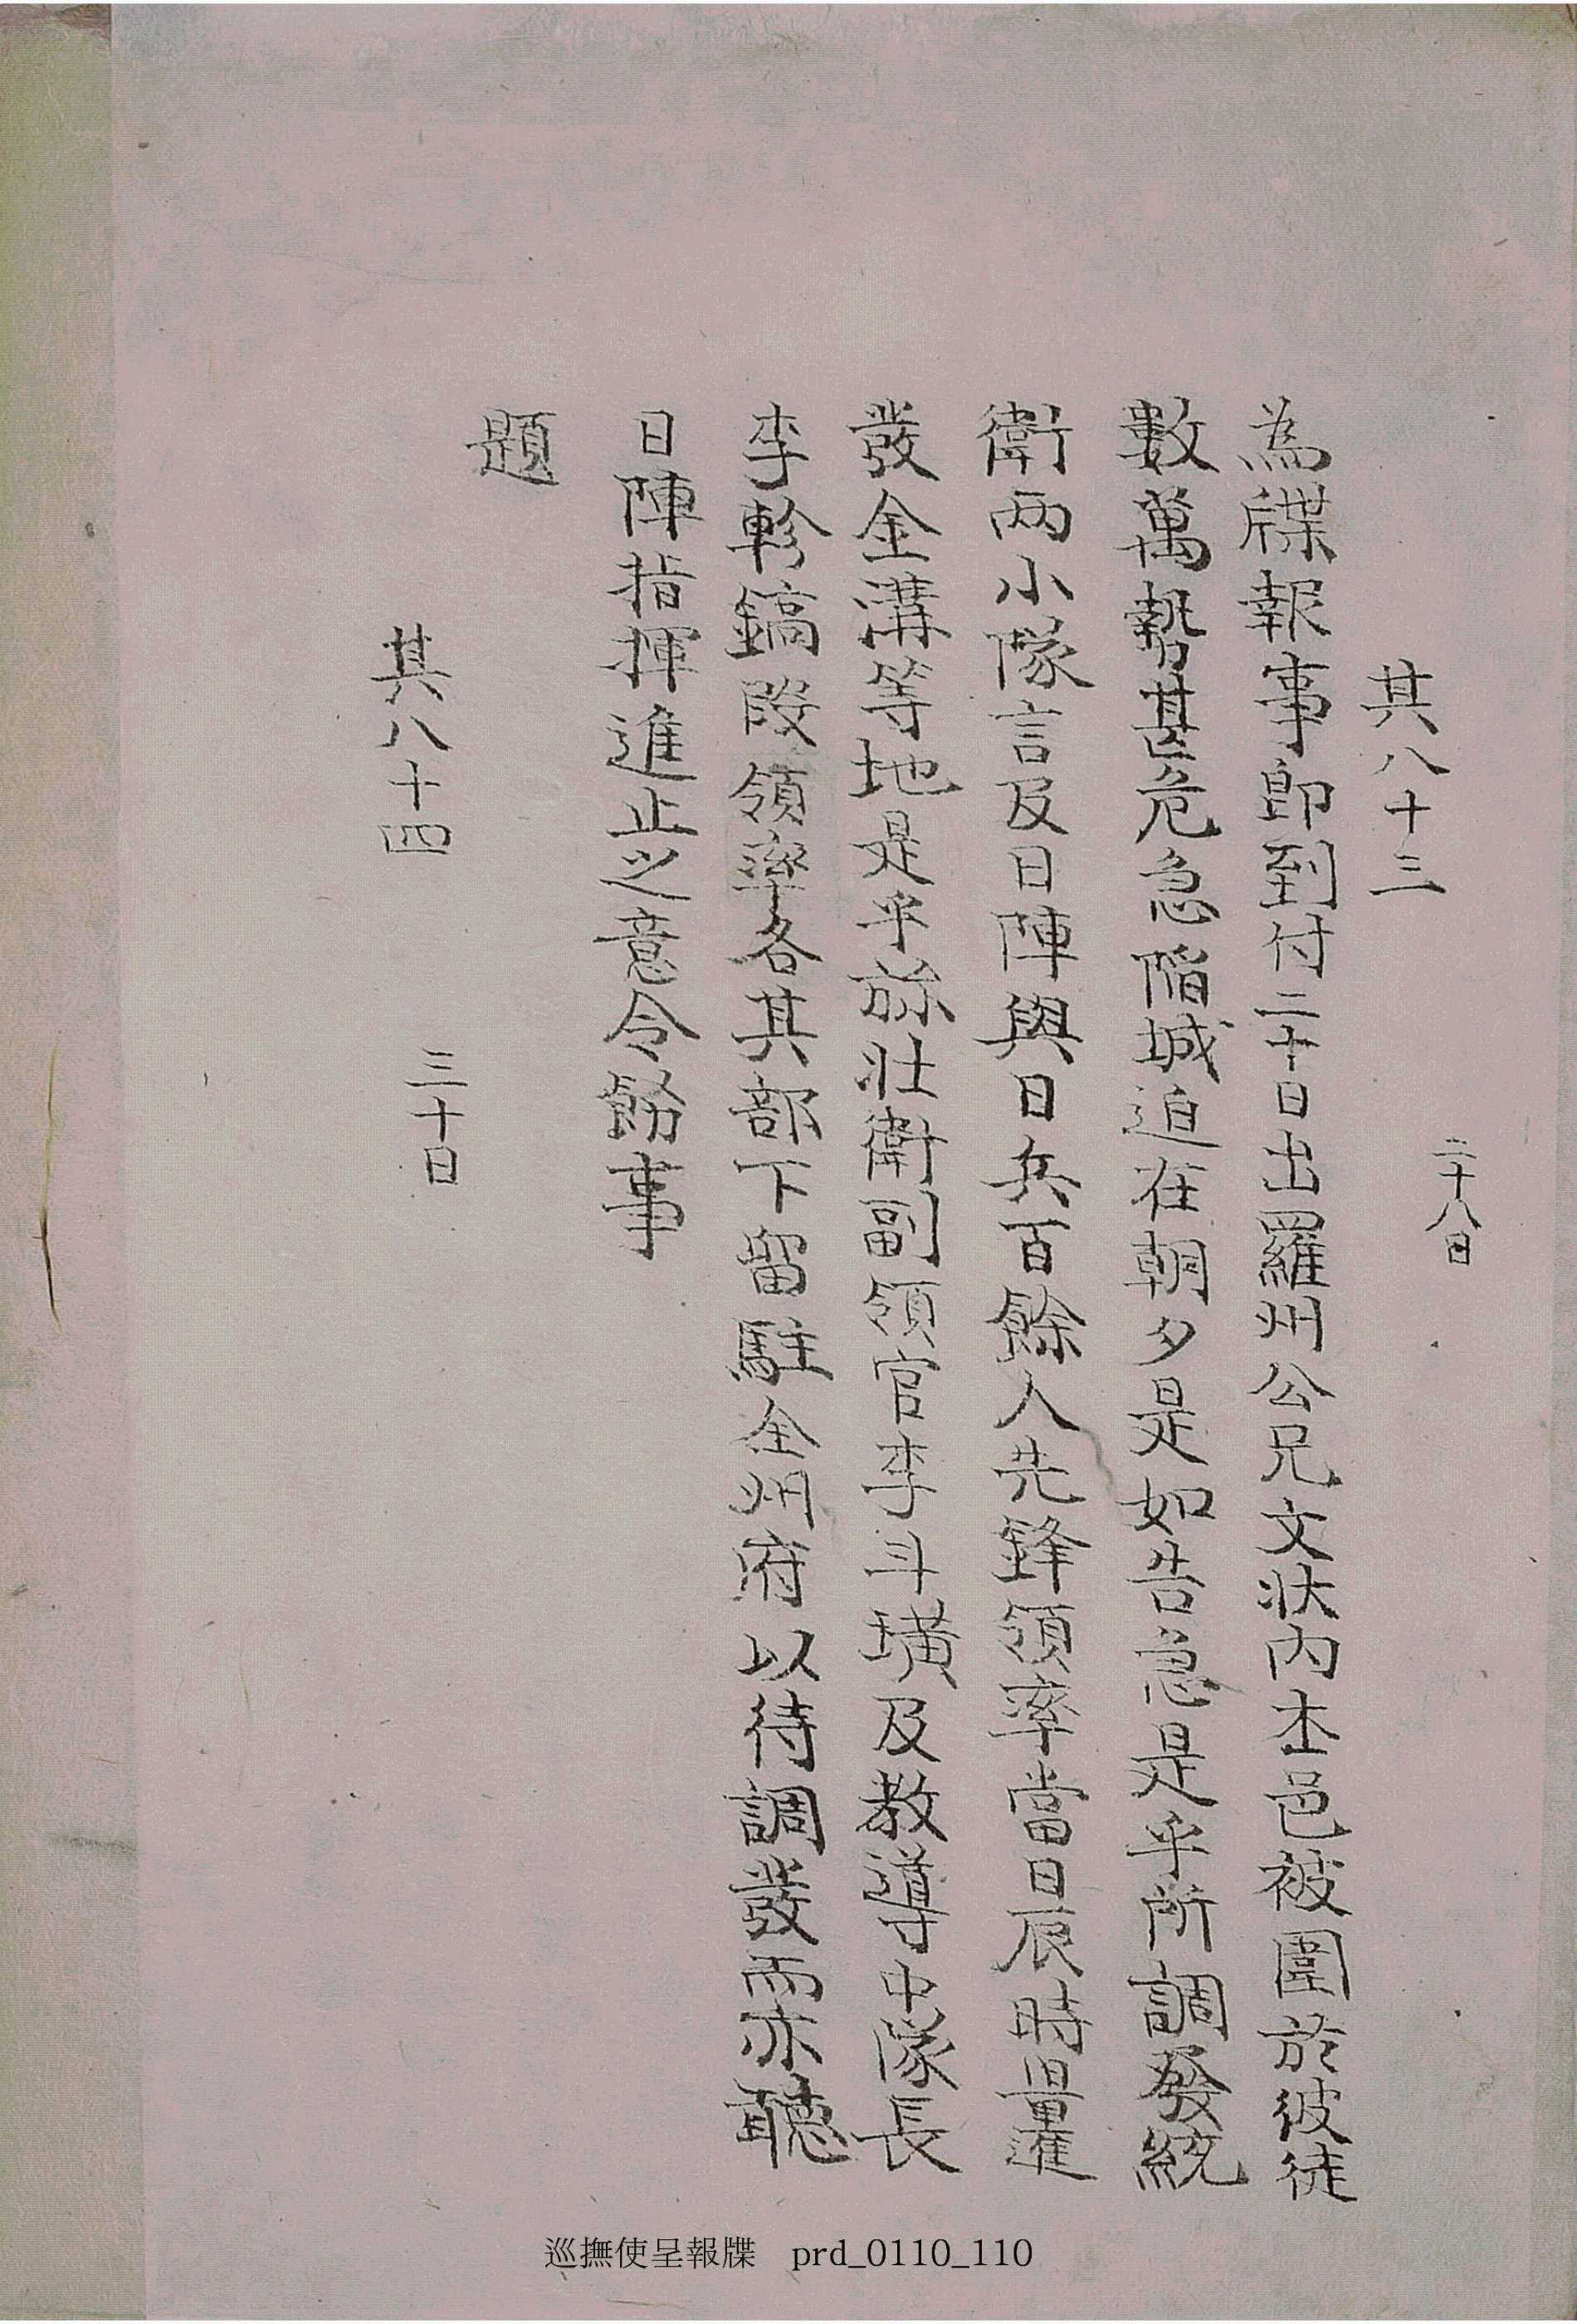 其八十三 二十八日
為牒報事卽到付二十日出羅州公兄文狀內本邑被圍於彼徒
數萬勢甚危急陷城迫在朝夕是如告急是乎所調發統
衛兩小隊言及日陣與日兵百餘人先鋒領率當日辰時量進
發金溝等地是乎旀壯衛副領官李斗璜及教導中隊長
李軫鎬段領率各其部下留駐全州府以待調發而亦聽
日陣指揮進止之意令飭事
題
其八十四 三十日
巡撫使呈報牒 prd_0110_110